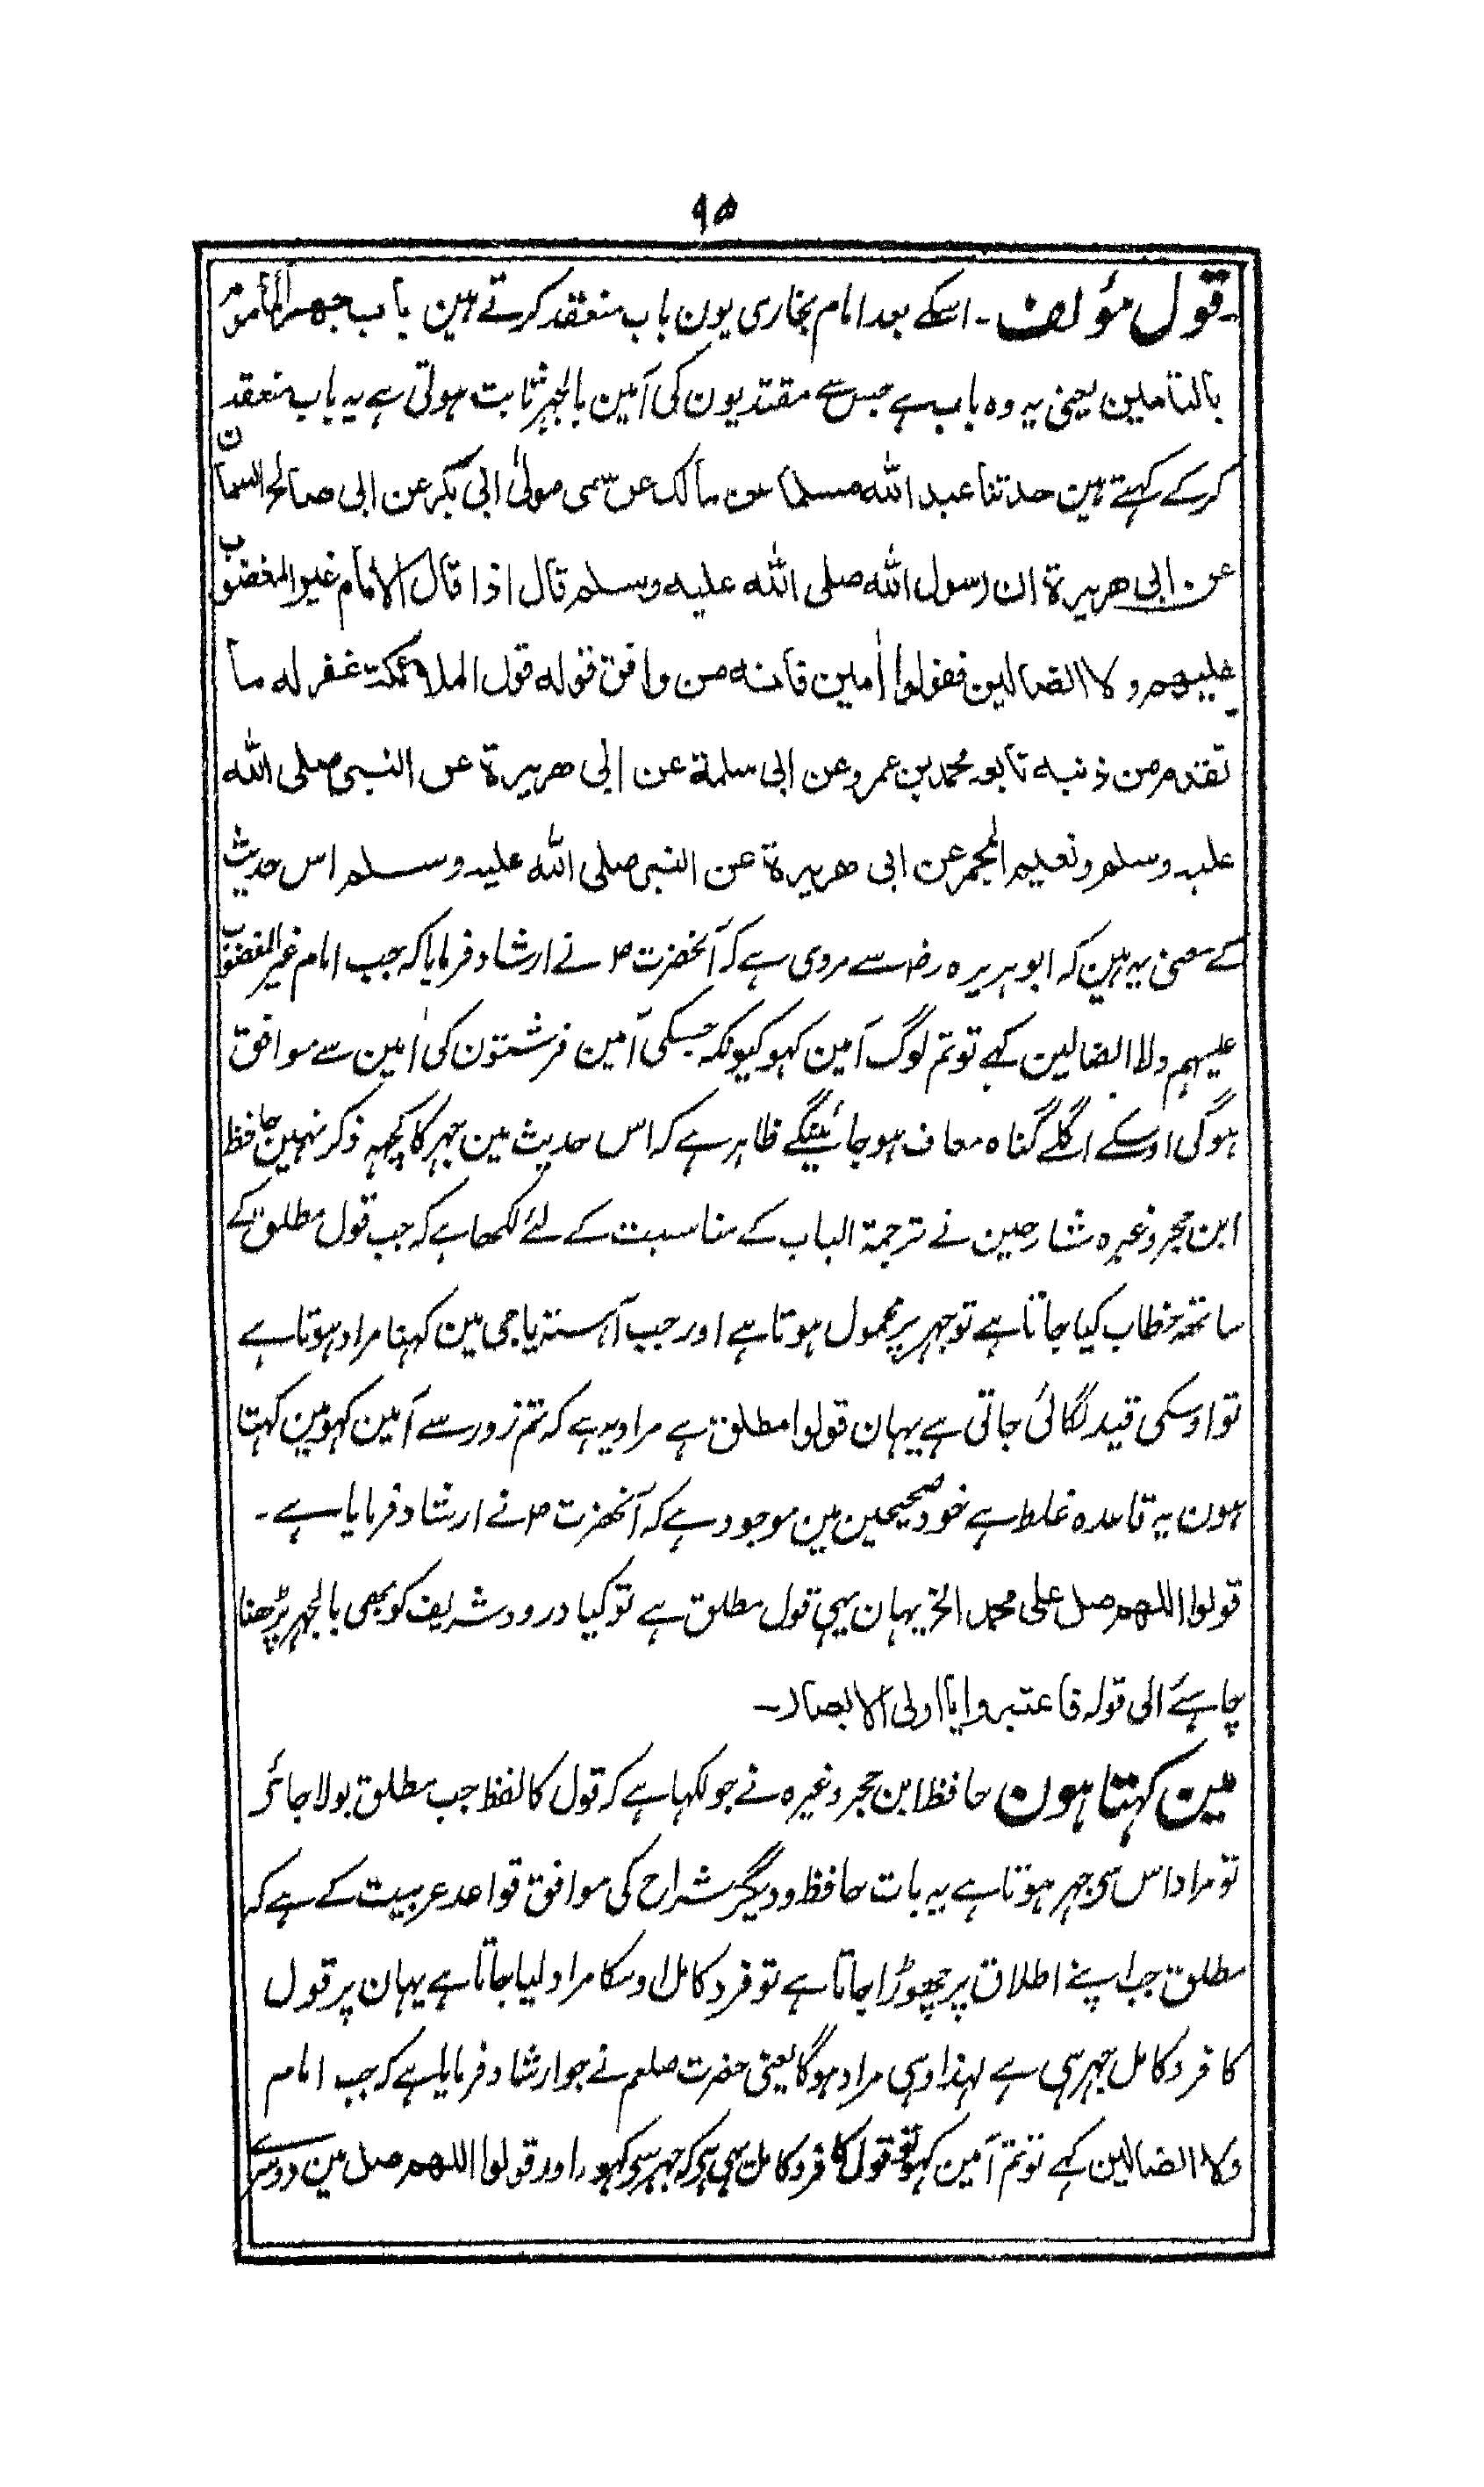 ۹۵
قول مؤلف ۔ اسکے بعد امام بخاری یون باب منعقد کرتے ہین باب جهر المأموم
بالتأمین یعنی یہ وہ باب ہے جس سے مقتدیون کی آمین بالجہر ثابت ہوتی ہے یہ باب منعقد
کرکے کہتے ہین حدثنا عبد الله مسلمة عن مالك عن سمی مولیٰ ابی بکر عن ابی صالح السمان
عن ابی هریرة ان رسول الله صلی الله علیه وسلم قال اذا قال الامام غیر المغضوب
علیهم ولا الضالین فقولوا اٰمین فانه من وافق قوله قول الملائکة غفر له ما
تقدم من ذنبه تابعه محمد بن عمرو عن ابی سلمة عن ابی هریرة عن النبی صلی الله
علیه وسلم ونعیم المجمر عن ابی هریرة عن النبی صلی الله علیه وسلم اس حدیث
کے معنی یہ ہین کہ ابو ہریرہ رض سے مروی ہے کہ آنحضرت ؐ نے ارشاد فرمایا کہ جب امام غیر المغضوب
علیہم ولا الضالین کہے تو تم لوگ آمین کہو کیونکہ جسکی آمین فرشتون کی اٰمین سے موافق
ہوگی اوسکے اگلے گناہ معاف ہوجائینگے ظاہر ہے کہ اس حدیث مین جہر کا کچہہ ذکر نہین حافظ
ابن حجر وغیرہ شارحین نے ترجمۃ الباب کے مناسبت کے لئے لکھا ہے کہ جب قول مطلق کے
ساتھ خطاب کیا جاتا ہے تو جہر پر محمول ہوتا ہے اور جب آہستہ یا جی مین کہنا مراد ہوتا ہے
تو اوسکی قید لگائی جاتی ہے یہان قولوا مطلق ہے مراد یہ ہے کہ تم زور سے آمین کہو مین کہتا
ہون یہ قاعدہ غلط ہے خود صحیحین مین موجود ہے کہ آنحضرت ؐ نے ارشاد فرمایا ہے ۔
قولوا اللهم صل علی محمد الخ یہان بہی قول مطلق ہے تو کیا درود شریف کو بھی بالجہر پڑھنا
چاہئے الی قولہ فاعتبروا یا اولی الابصار ۔
مین کہتا ہون حافظ ابن حجر وغیرہ نے جو لکہا ہے کہ قول کا لفظ جب مطلق بولا جائے
تو مراد اس سی جہر ہوتا ہے یہ بات حافظ و دیگر شراح کی موافق قواعد عربیت کے ہے کہ
مطلق جب اپنے اطلاق پر چھوڑا جاتا ہے تو فرد کامل اوسکا مراد لیا جاتا ہے یہان پر قول
کا فرد کامل جہر ہی ہے لہذا وہی مراد ہوگا یعنی حضرت صلعم نے جو ارشاد فرمایا ہے کہ جب امام
ولا الضالین کہے تو تم آمین کہو تو قول کا فرد کامل یہی ہے کہ جہر سی کہو، اور قولوا اللهم صل مین دوسرے